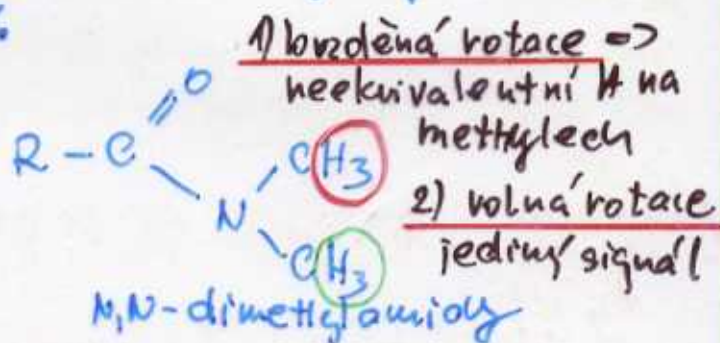 1) brzděná rotace =>
neekvivalentní H na
methylech
O
R – C
CH3
N
2) volná rotace
jediný signál
CH3
N,N-dimethylamidy